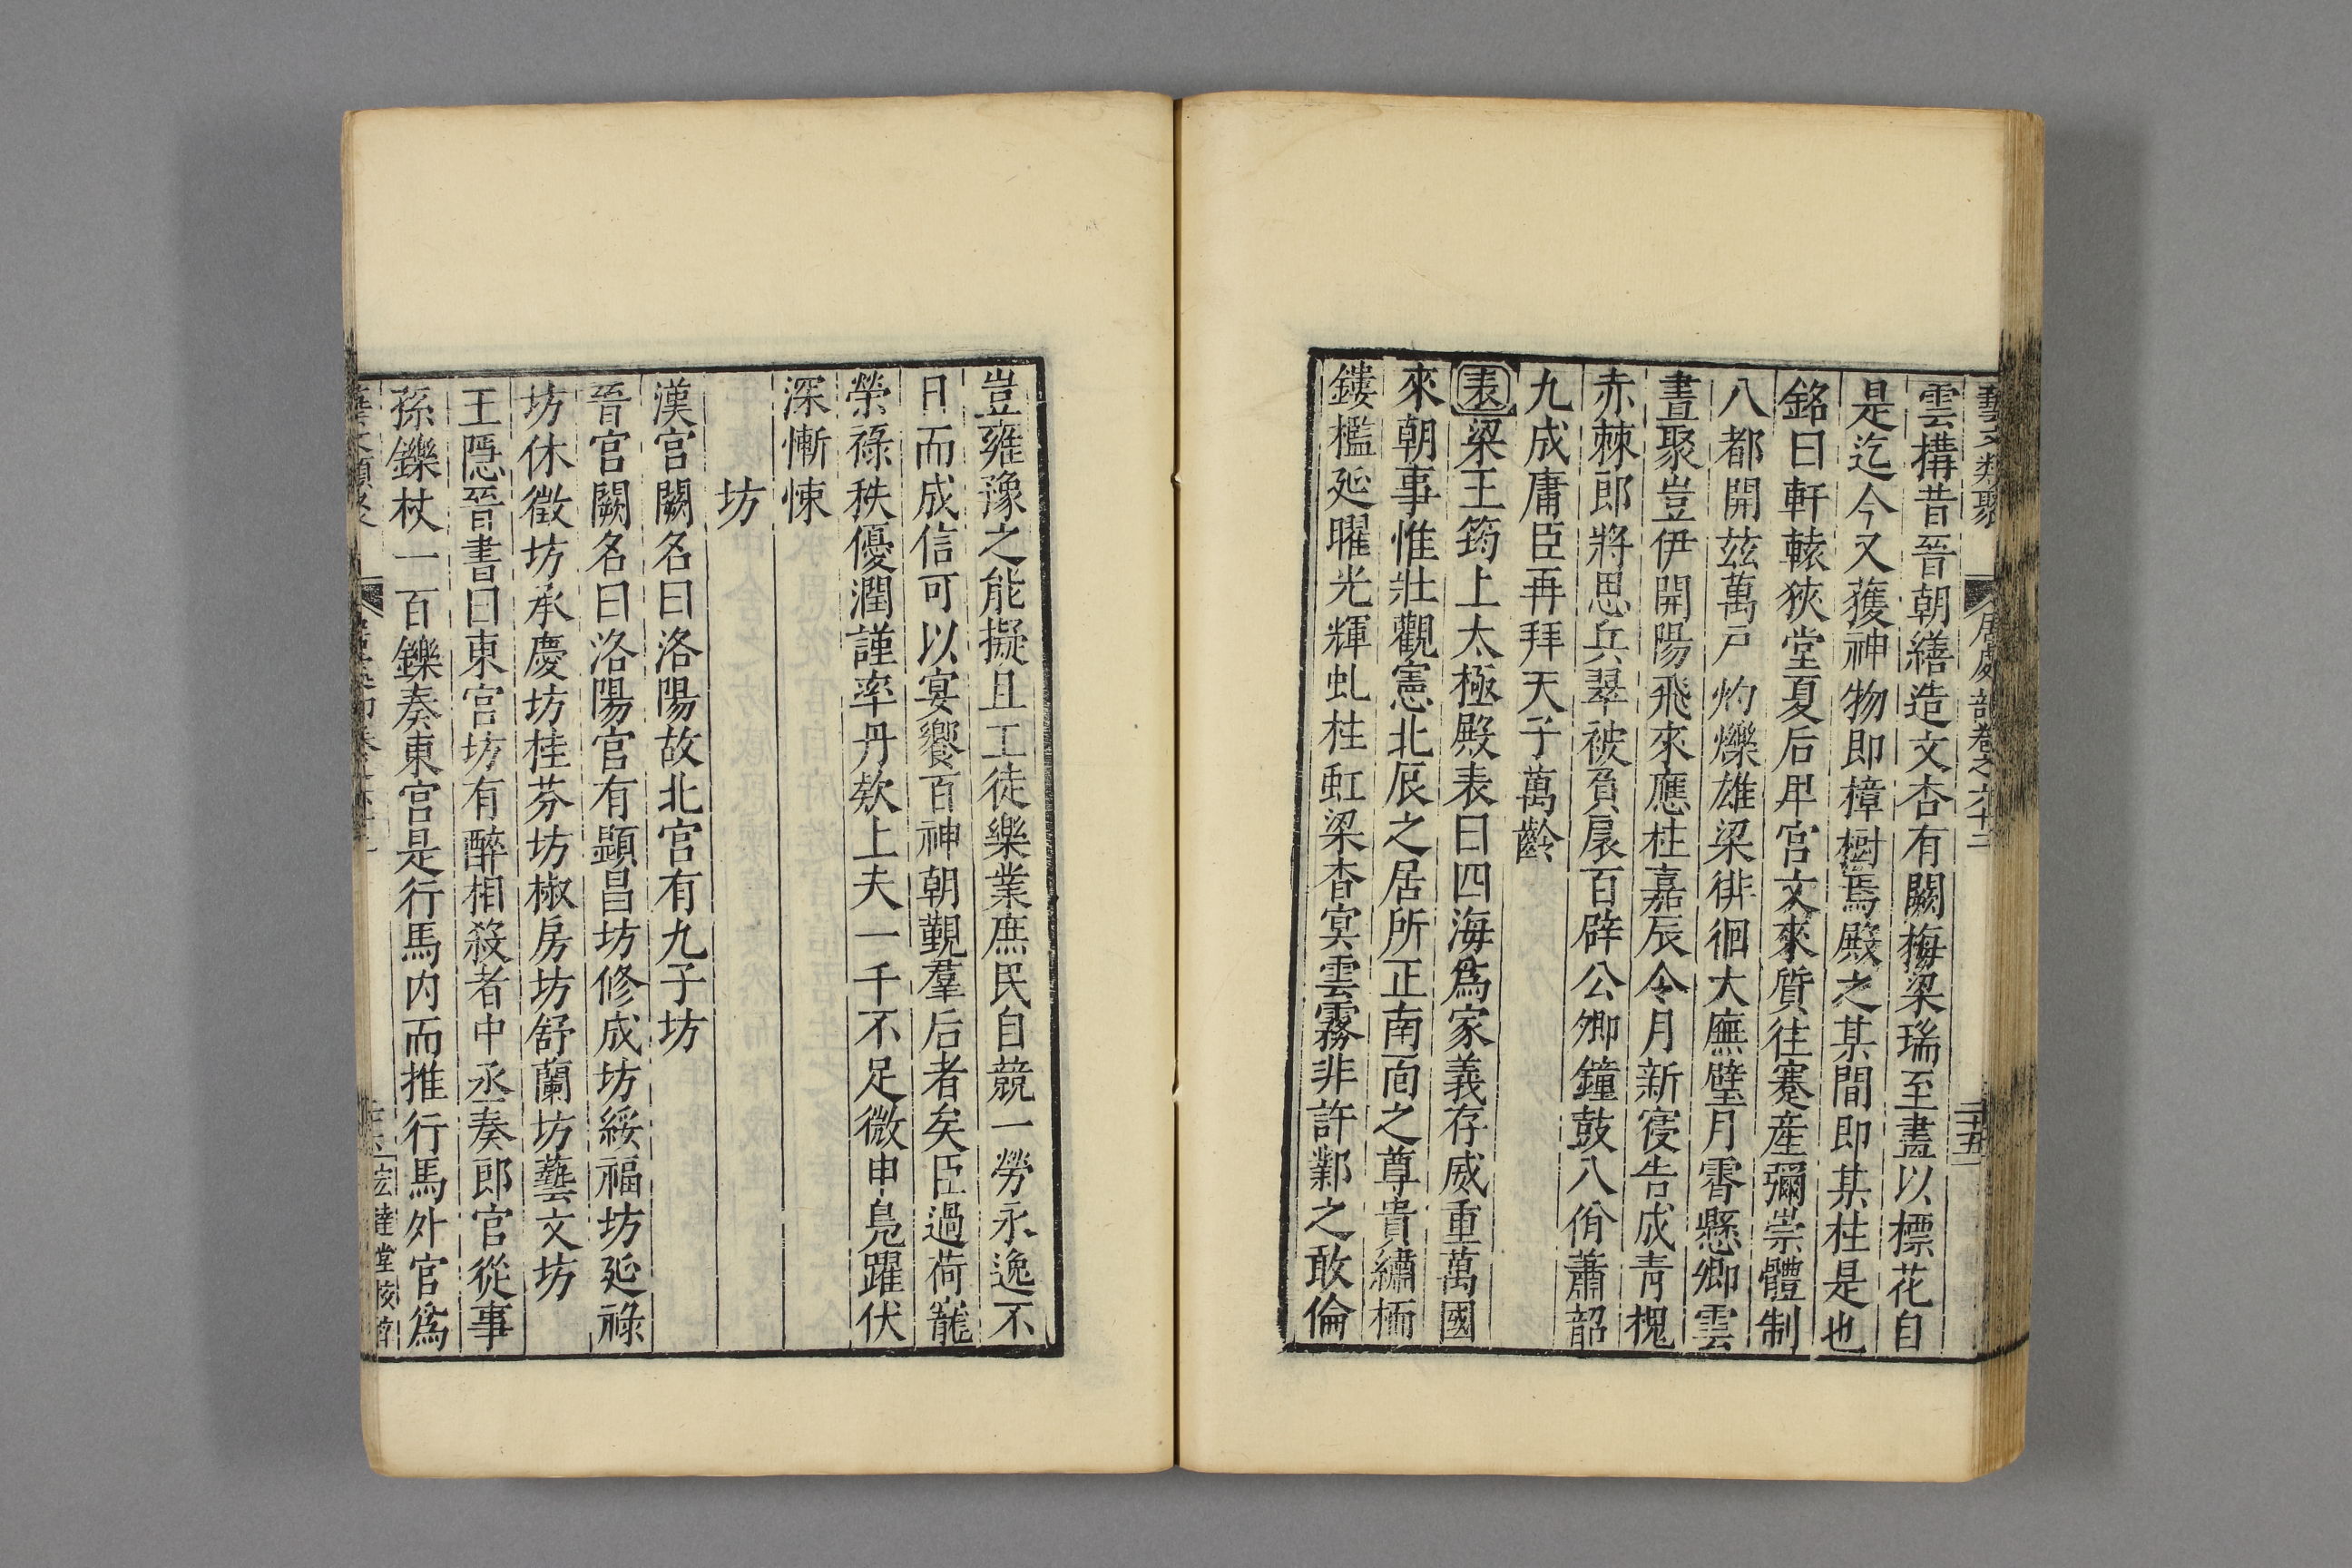 藝文類聚 居處部卷之六十二 二十五
雲構昔晉朝繕造文杏有闕梅梁瑞至畫以標花自
是迄今又獲神物即樟樹焉殿之某間即某柱是也
銘曰軒轅狹堂夏后卑宮文來質往蹇産彌崇體制
八都開茲萬戸灼爍雄梁徘徊大廡璧月霄懸卿雲
晝聚豈伊開陽飛來應柱嘉辰令月新寑告成青槐
赤棘郎將思兵翠被負扆百辟公卿鐘鼓八佾蕭韶
九成庸臣再拜天子萬齡
表梁王筠上太極殿表曰四海爲家義存威重萬國
來朝事惟壯觀憲北辰之居所正南面之尊貴繡栭
鏤檻延曜光輝虬柱虹梁杳㝠雲霧非許鄴之敢倫
豈雍豫之能擬且工徒樂業庶民自競一勞永逸不
日而成信可以宴饗百神朝覲羣后者矣臣過荷寵
榮祿秩優潤謹率丹欵上夫一千不足微申鳧躍伏
深慚悚
坊
漢宮闕名曰洛陽故北宮有九子坊
晉宮闕名曰洛陽宮有顯昌坊修成坊綏福坊延祿
坊休徵坊承慶坊桂芬坊椒房坊舒蘭坊藝文坊
王隱晉書曰東宮坊有醉相殺者中丞奏郎官從事
孫鑠杖一百鑠奏東宮是行馬内而推行馬外官爲